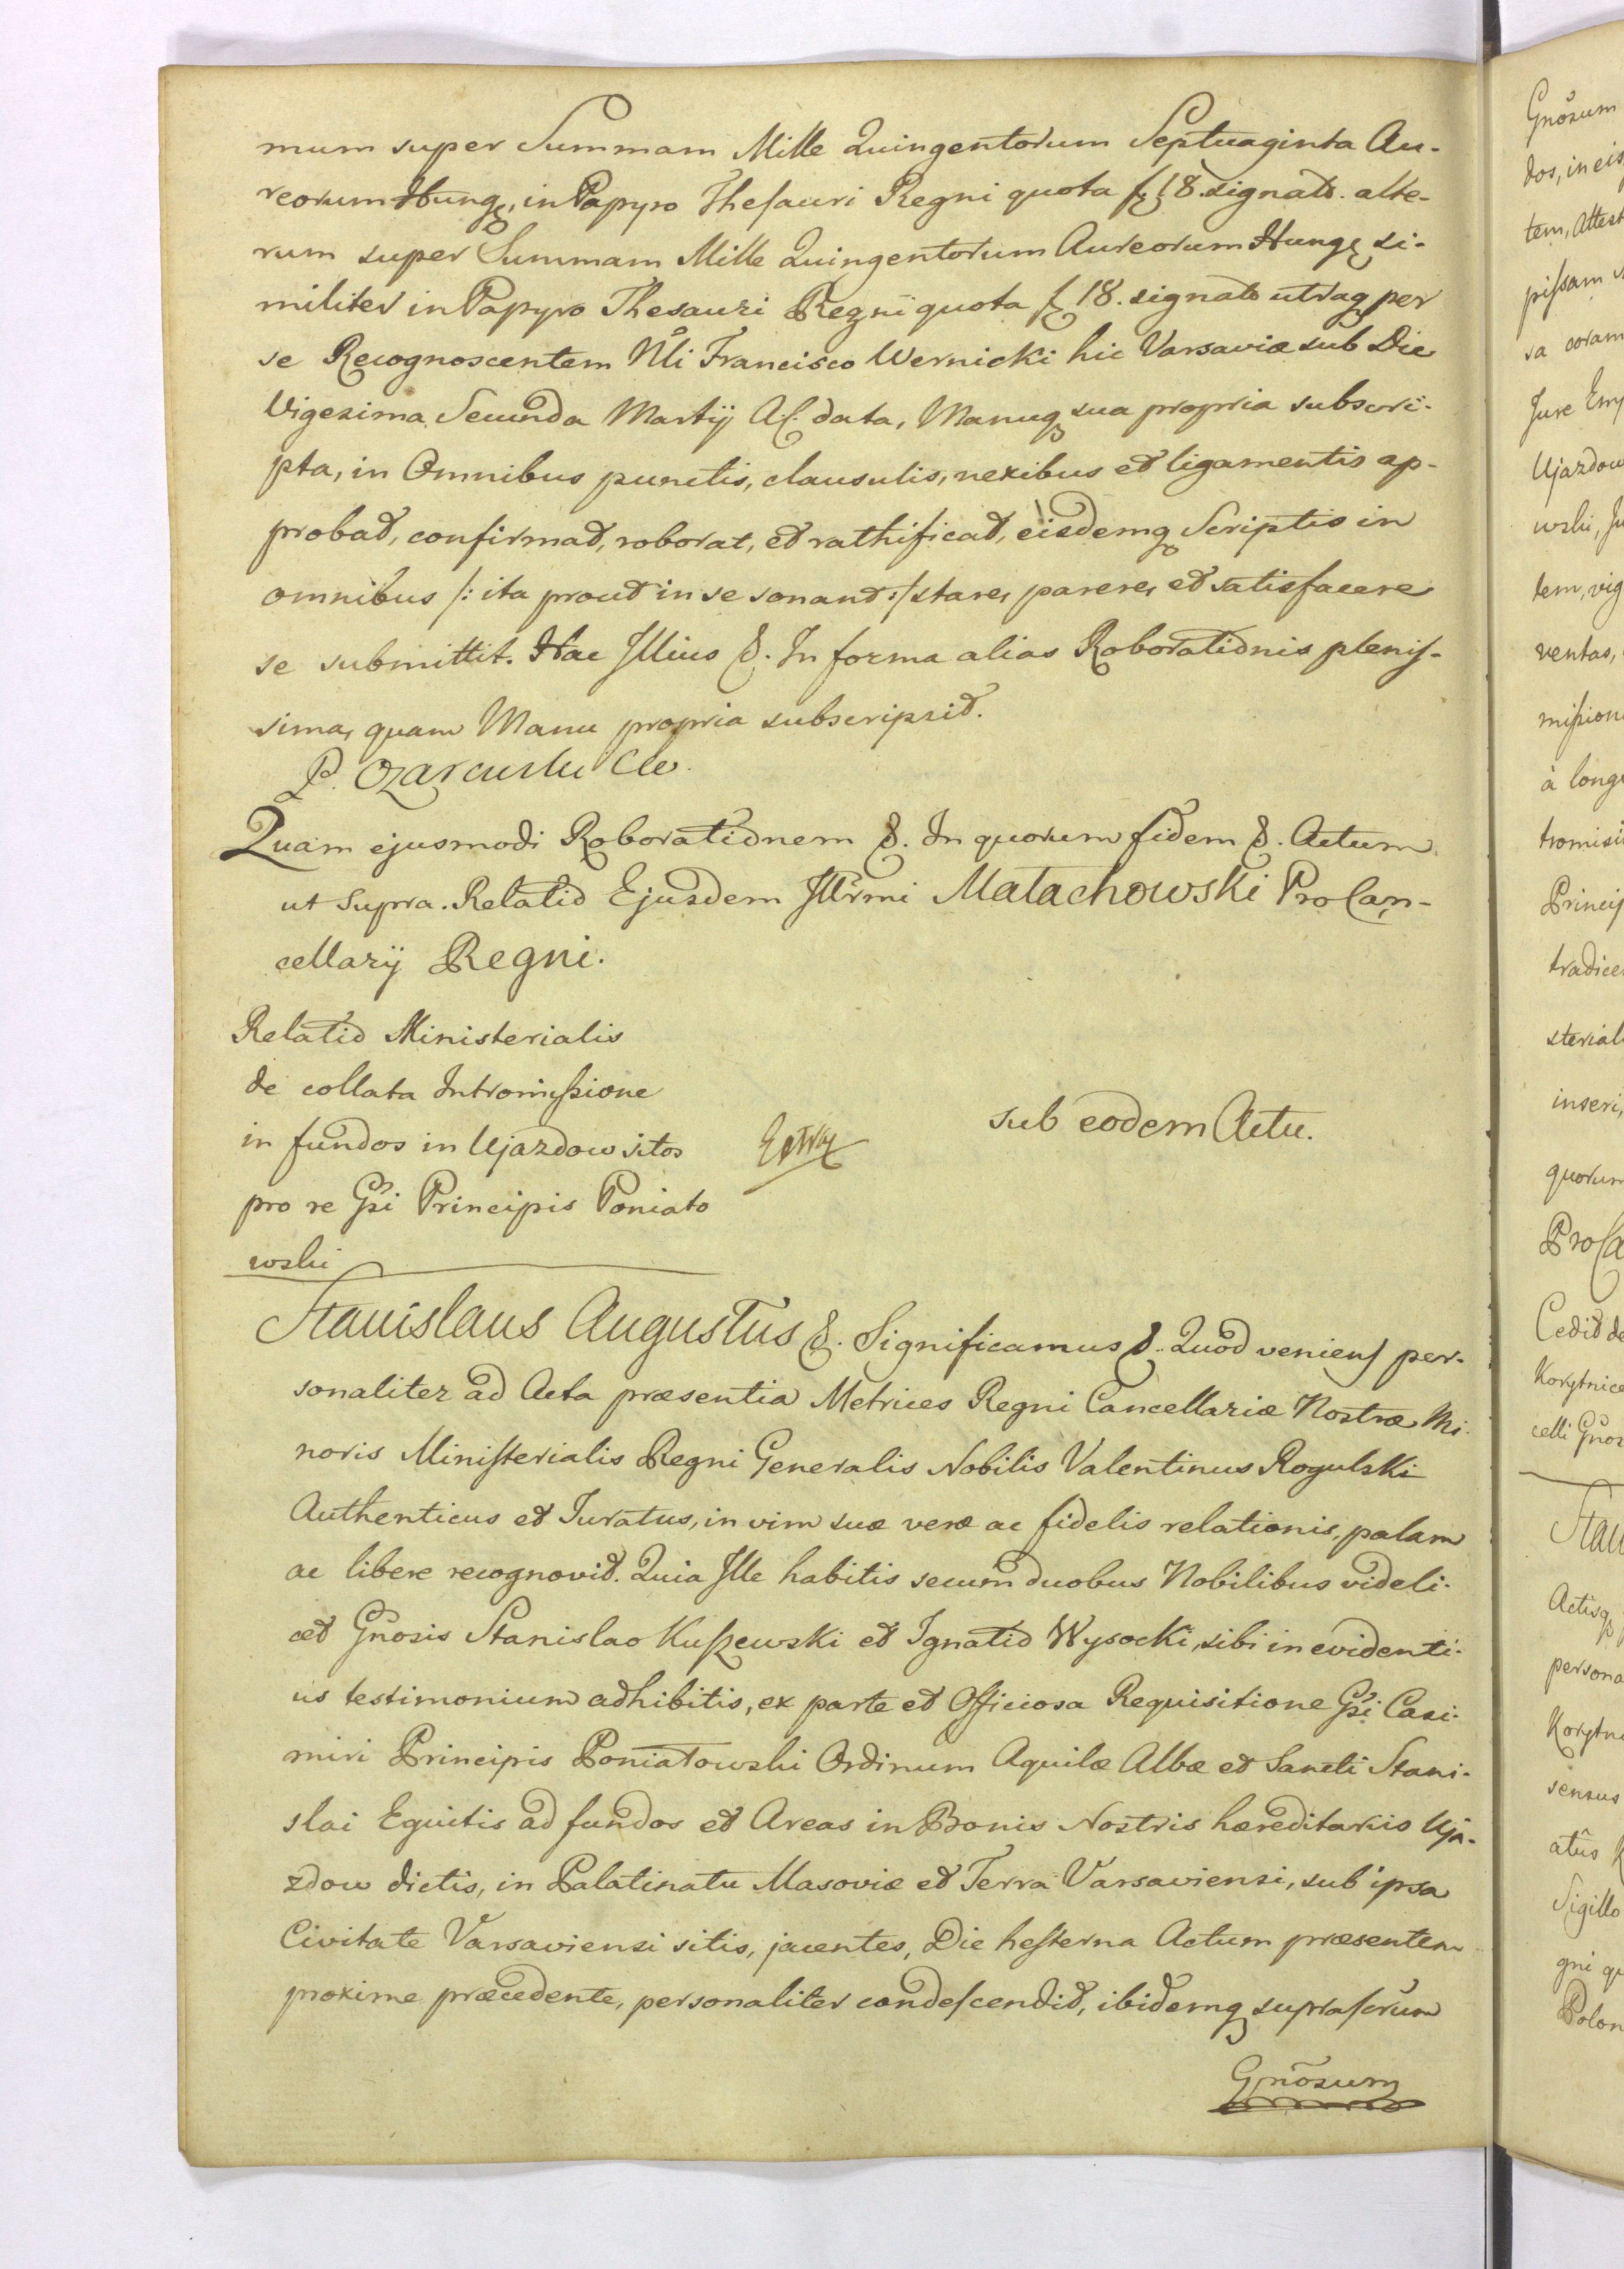 mum super Summam Mille Quingentorum Septuaginta Au-
reorum Hungę, in Papyro Thesauri Regni quota f 18. signato. alte-
rum super Summam Mille Quingentorum Aureorum Hungę si-
militer in Papyro Thesauri Regni quota f 18. signato utraq per
se Recognoscentem Nli Francisco Wernicki hic Varsaviæ sub Die
Vigesima Secunda Martij A.C. data, Manuq sua propria subscri-
pta, in Omnibus punctis, clausulis, nexibus et ligamentis ap-
probat, confirmat, roborat, et rathificat, eisdemq Scriptis in
omnibus /: ita prout in se sonant :/ stare, parere, et satisfacere
se submittit. Hac Illius &. In forma alias Roborationis plenis-
sima, quam Manu propria subscripsit.
P. Ozarcuski
Quam ejusmodi Roborationem &. In quorum fidem &. Actum
ut Supra. Relatio Ejusdem Illrmi Małachowski ProCan-
cellarij Regni.
Relatio Ministerialis
de collata Intromissione
in fundos in Ujazdow sitos
pro re Gsi Principis Poniato
wski
Extra
sub eodem Actu.
Stanislaus Augustus &. Significamus &. Quod veniens per-
sonaliter ad Acta præsentia Metrices Regni Cancellariæ Nostræ Mi-
noris Ministerialis Regni Generalis Nobilis Valentinus Rogulski
Authenticus et Juratus, in vim suæ veræ ac fidelis relationis, palam
ac libere recognovit. Quia Ille habitis secum duobus Nobilibus videli-
cet Gnosis Stanislao Kuszewski et Ignatio Wysocki, sibi in evidenti-
us testimonium adhibitis, ex parte et Officiosa Requisitione Gsi Casi-
miri Principis Poniatowski Ordinum Aquilæ Albæ et Sancti Stani-
slai Equitis ad fundos et Areas in Bonis Nostris hæreditariis Uja-
zdow dictis, in Palatinatu Masoviæ et Terra Varsaviensi, sub ipsa
Civitate Varsaviensi sitis, jacentes, Die hesterna Actum præsentem
proxime præcedente, personaliter condescendit, ibidemq suprascrum
Gnosum
Gnosum
dos, in eis
tem, Attest
pissam
sa coram
Jure Emp
Ujazdow
wski, Ju
tem, vig
ventas,
mission
à long
tromisi
Princip
tradice
sterial
inseri,
quorum
ProCa
Cedit de
Korytnice
celli Gnos
Stau
Actisq
persona
Korytn
sensus
atûs
Sigillo
gni qu
Polon